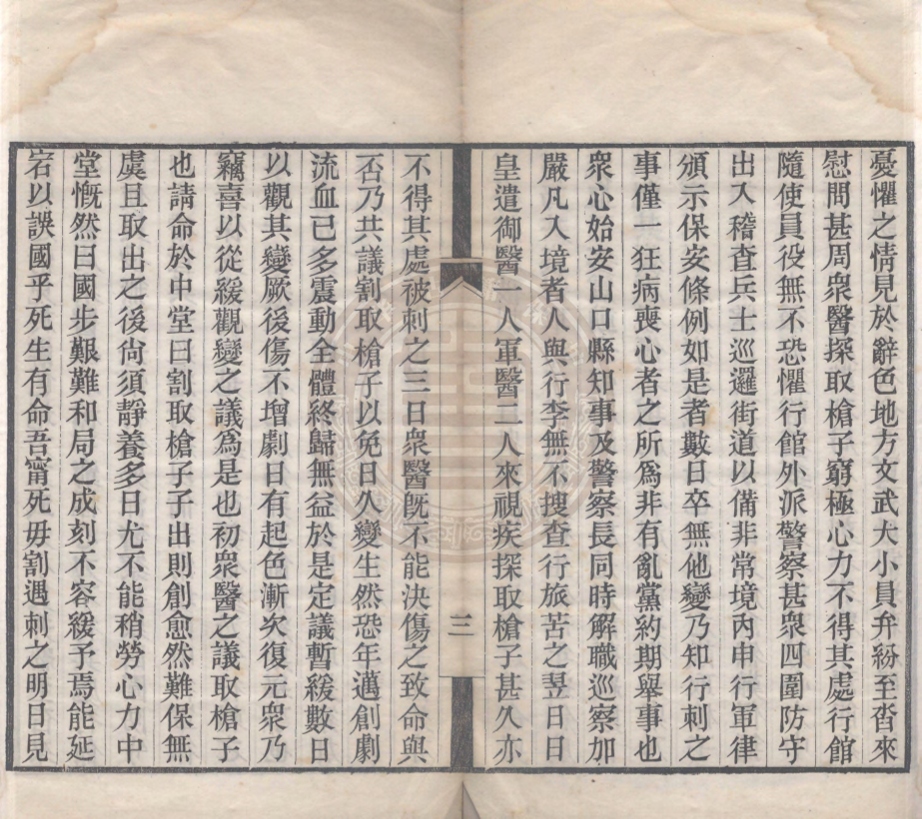 憂懼之情見於辭色地方文武大小員弁紛至沓來
慰問甚周衆醫探取槍子窮極心力不得其處行館
隨使員役無不恐懼行館外派警察甚衆四圍防守
出入稽查兵士巡邏街道以備非常境內申行軍律
頒示保安條例如是者數日卒無他變乃知行刺之
事僅一狂病喪心者之所爲非有亂黨約期舉事也
衆心始安山口縣知事及警察長同時解職巡察加
嚴凡入境者人與行李無不搜查行旅苦之翌日日
皇遣御醫一人軍醫二人來視疾探取槍子甚久亦
三
不得其處被刺之三日衆醫旣不能決傷之致命與
否乃共議割取槍子以免日久變生然恐年邁創劇
流血已多震動全體終歸無益於是定議暫緩數日
以觀其變厥後傷不增劇日有起色漸次復元衆乃
竊喜以從緩觀變之議爲是也初衆醫之議取槍子
也請命於中堂曰割取槍子子出則創愈然難保無
虞且取出之後尙須靜養多日尤不能稍勞心力中
堂慨然曰國步艱難和局之成刻不容緩予焉能延
宕以誤國乎死生有命吾甯死毋割遇刺之明日見